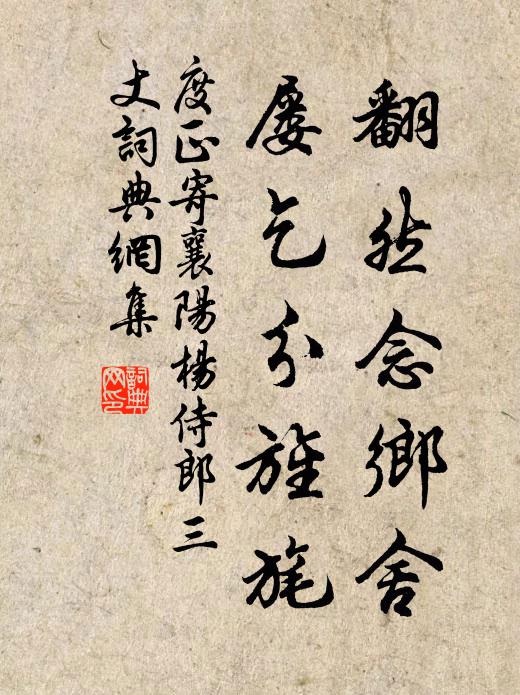 翻然念鄉舍
屡乞分旌旄
度正寄襄陽楊侍郎三
丈詞典網集
詞典
网印